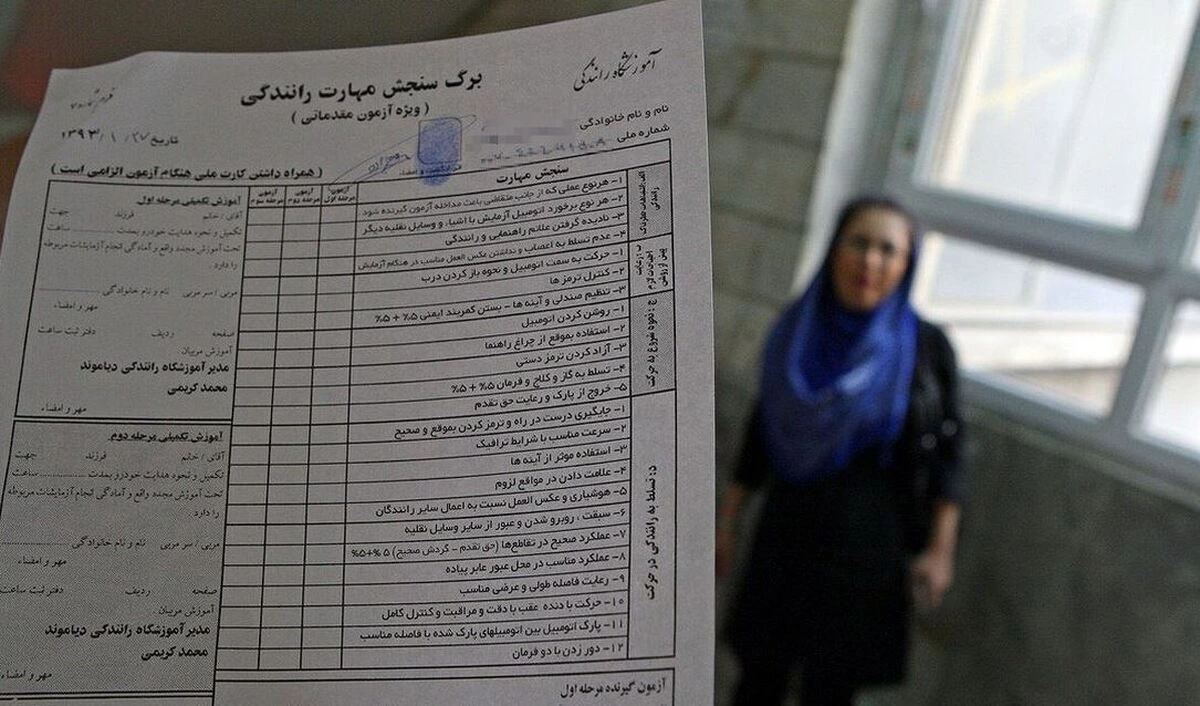 آموزشگاه رانندگی
برگ سنجش مهارت رانندگی
( ویژه آزمون مقدماتی )
نام و نام خانوادگی
شماره ملی
تاریخ ۱۳۹۳/۱/۲۷
( همراه داشتن کارت ملی هنگام آزمون الزامی است )
سنجش مهارت
آزمون مرحله اول
آزمون مرحله دوم
آزمون مرحله سوم
۱- هرنوع عملی که از جانب متقاضی باعث مداخله آزمون گیرنده شود
۲- هر نوع برخورد اتومبیل آزمایش با اشیاء و وسایل نقلیه دیگر
۳- نادیده گرفتن علائم راهنمایی و رانندگی
۴- عدم تسلط به اعصاب و نداشتن عکس العمل مناسب در هنگام آزمایش
۱- حرکت به سمت اتومبیل و نحوه باز کردن درب
۲- کنترل ترمز ها
۳- تنظیم صندلی و آینه ها - بستن کمربند ایمنی ۵% + ۵%
ج : نحوه شروع به حرکت
۱- روشن کردن اتومبیل
۲- استفاده بموقع از چراغ راهنما
۳- آزاد کردن ترمز دستی
۴- تسلط به گاز و کلاج و فرمان ۵% + ۵%
۵- خروج از پارک و رعایت حق تقدم
د: تسلط به رانندگی در حرکت
۱- جایگیری درست در راه و ترمز کردن بموقع و صحیح
۲- سرعت مناسب با شرایط ترافیک
۳- استفاده موثر از آینه ها
۴- علامت دادن در مواقع لزوم
۵- هوشیاری و عکس العمل نسبت به اعمال سایر رانندگان
۶- سبقت ، روبرو شدن و عبور از سایر وسایل نقلیه
۷- عملکرد صحیح در تقاطع‌ها (حق تقدم - گردش صحیح) ۵%+۵%
۸- عملکرد مناسب در محل عبور عابر پیاده
۹- رعایت فاصله طولی و عرضی مناسب
۱۰- حرکت با دنده عقب با دقت و مراقبت و کنترل کامل
۱۱- پارک اتومبیل بین اتومبیلهای پارک شده با فاصله مناسب
۱۲- دور زدن با دو فرمان
آزمون گیرنده مرحله اول
آموزش تکمیلی مرحله اول
آقای / خانم فرزند جهت
تکمیل و نحوه هدایت خودرو بمدت ........ ساعت
تحت آموزش مجدد واقع و آمادگی انجام آزمایشات مربوطه
را دارد .
مربی / سر مربی نام و نام خانوادگی
مهر و امضاء
صفحه ردیف دفتر ثبت ساعت
آموزش مربیان
مدیر آموزشگاه رانندگی دیاموند
محمد کریمی
مهر و امضاء
آموزش تکمیلی مرحله دوم
آقای / خانم فرزند جهت
تکمیل و نحوه هدایت خودرو بمدت ........ ساعت
تحت آموزش مجدد واقع و آمادگی انجام آزمایشات مربوطه
را دارد .
مربی / سر مربی نام و نام خانوادگی
مهر و امضاء
صفحه ردیف دفتر ثبت ساعت
آموزش مربیان
مدیر آموزشگاه رانندگی دیاموند
محمد کریمی
مهر و امضاء